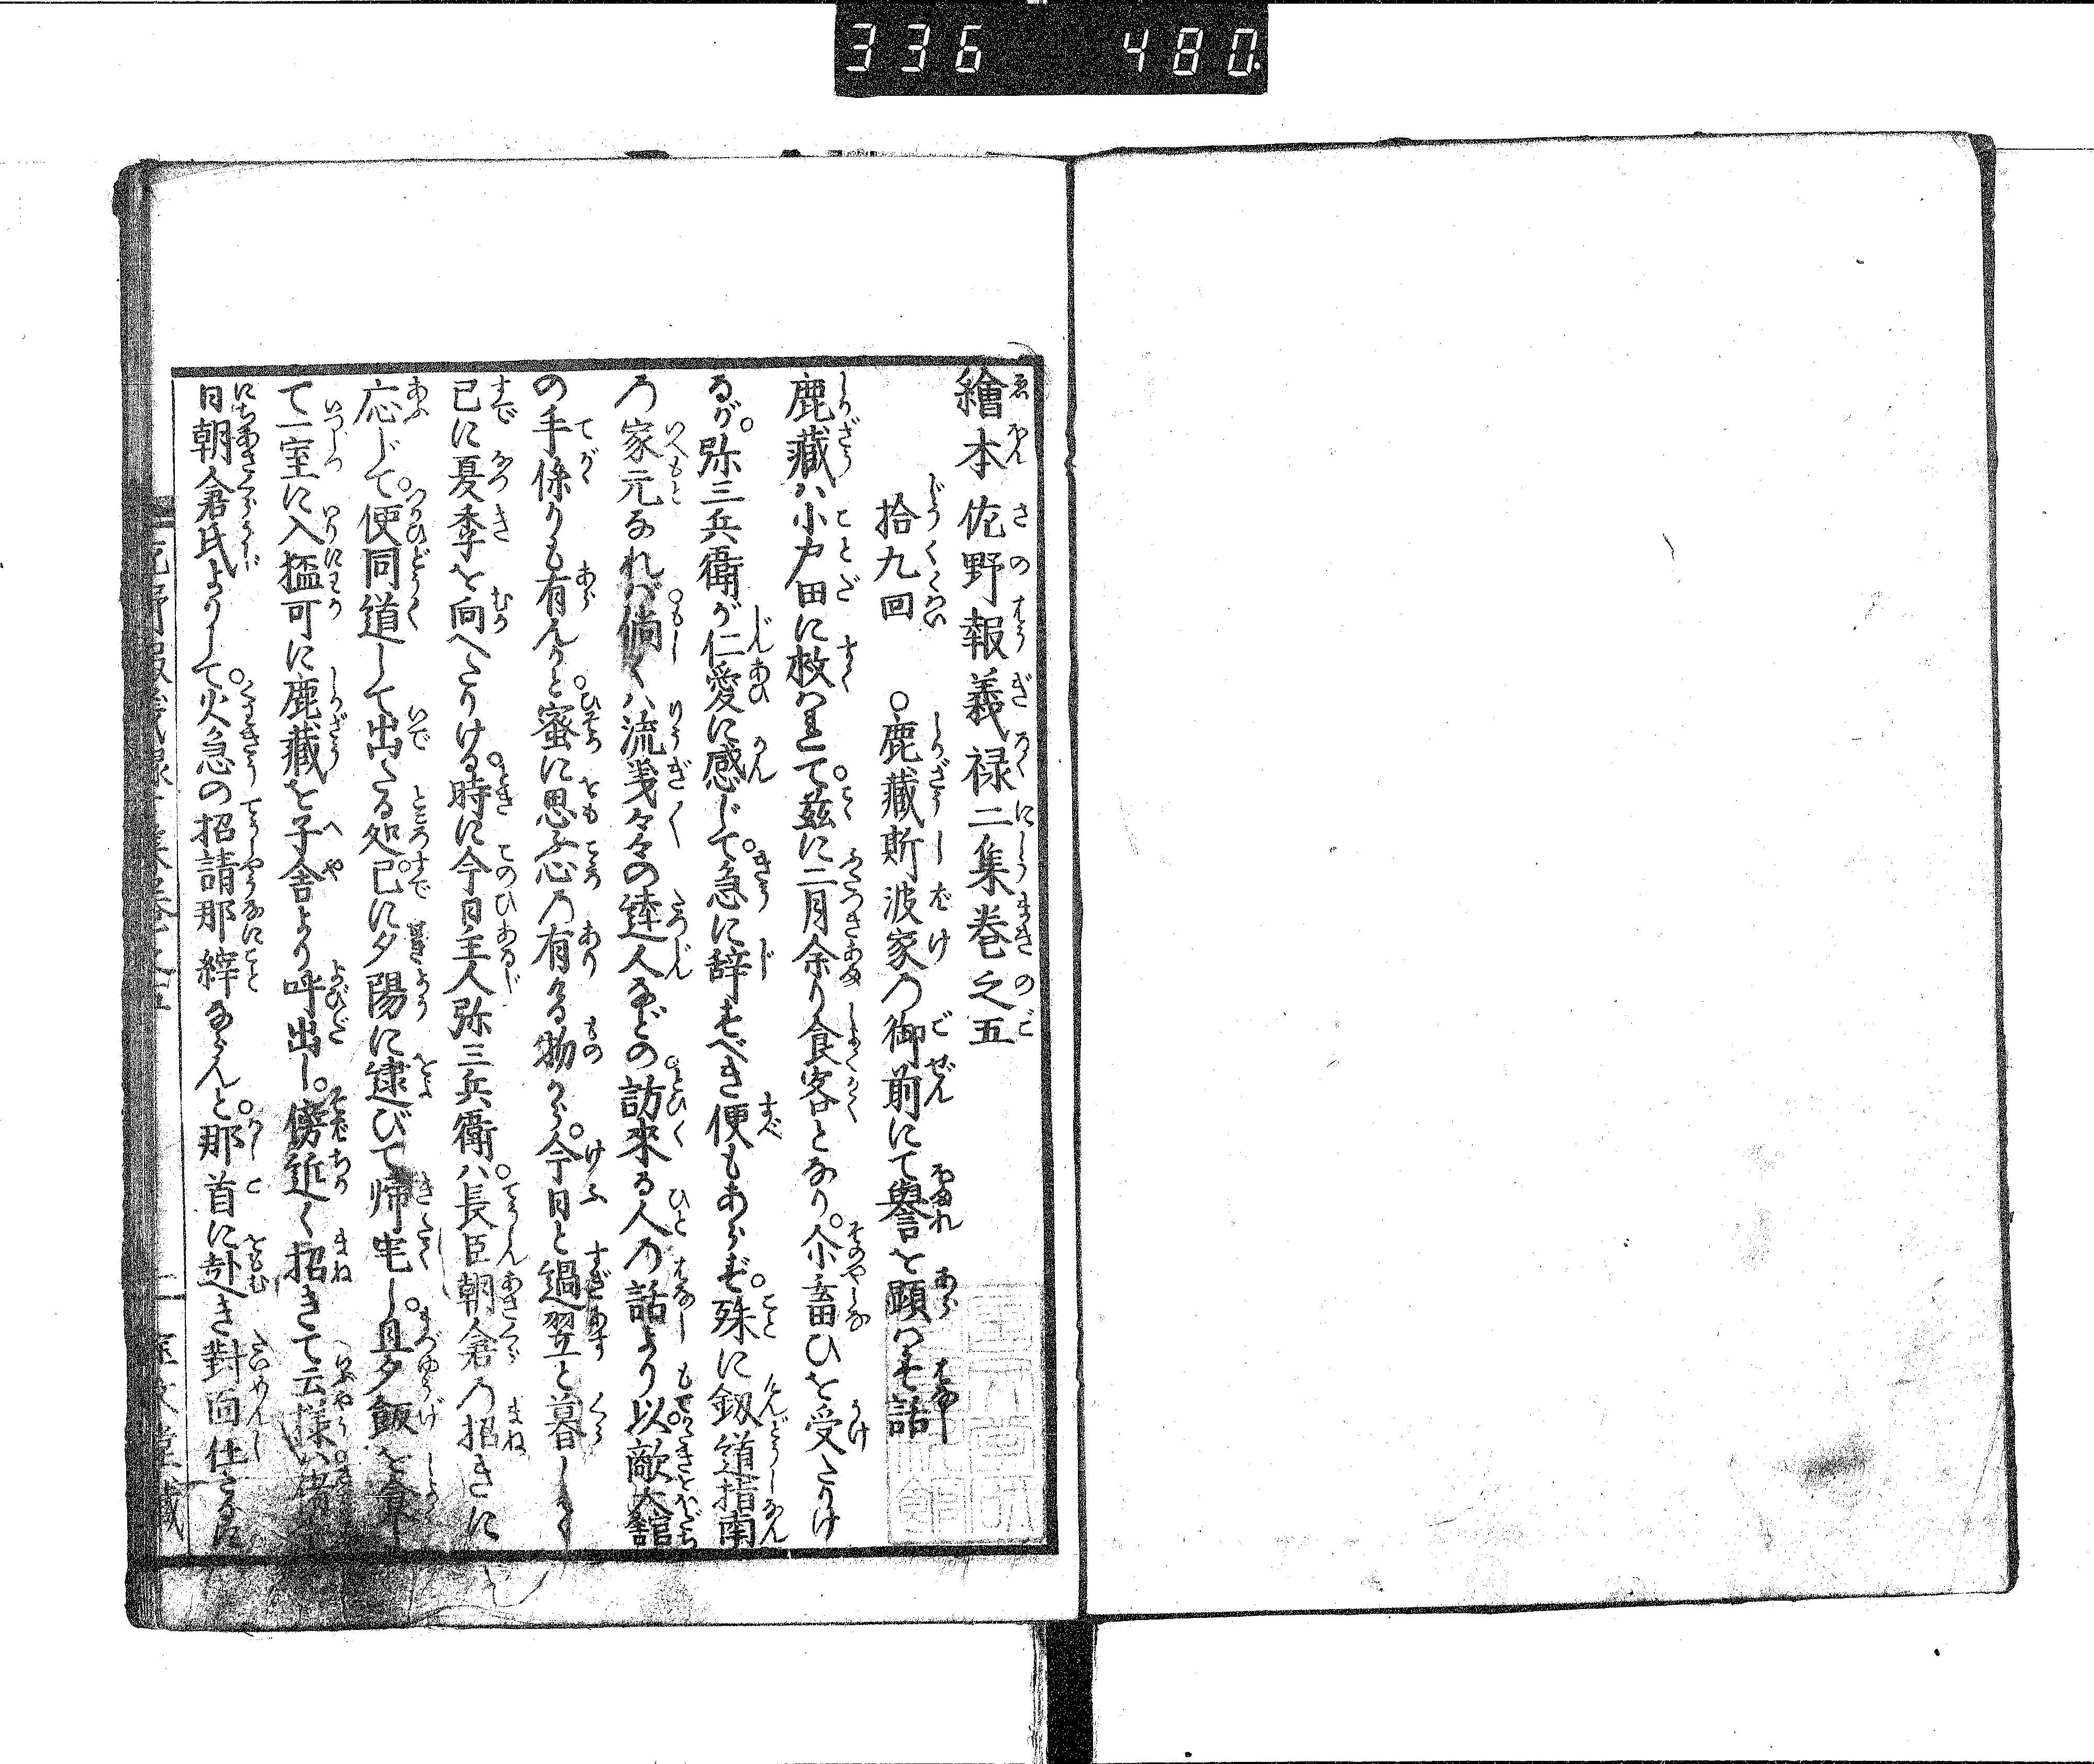 336 480
繪本佐野報義禄二集巻之五
拾九回 ○鹿藏斯波家の御前にて譽を顕はす話
鹿藏ハ小戸田に救はれて。茲に二月余り食客となり。尒畜ひを受たりけ
るが。弥三兵衛が仁愛に感じて。急に辞すべき便もあらず。殊に釼道指南
の家元なれバ。倘くハ流義々々の達人などの。訪來る人の話より。以敵大舘
の手條りも有んかと。蜜に思ふ心の有ける物から。今日と過翌と暮しつゝ
已に夏季を向へたりける。時に今日主人弥三兵衛ハ。長臣朝倉の招きに
応じて。便同道して出たる処。已に夕陽に逮びて帰宅し。且夕飯を食
て一室に入猛可に鹿藏を子舎より呼出し。傍近く招きて云様
日朝倉氏よりして。火急の招請那縡ならんと。那首に赴き對面仕たるに